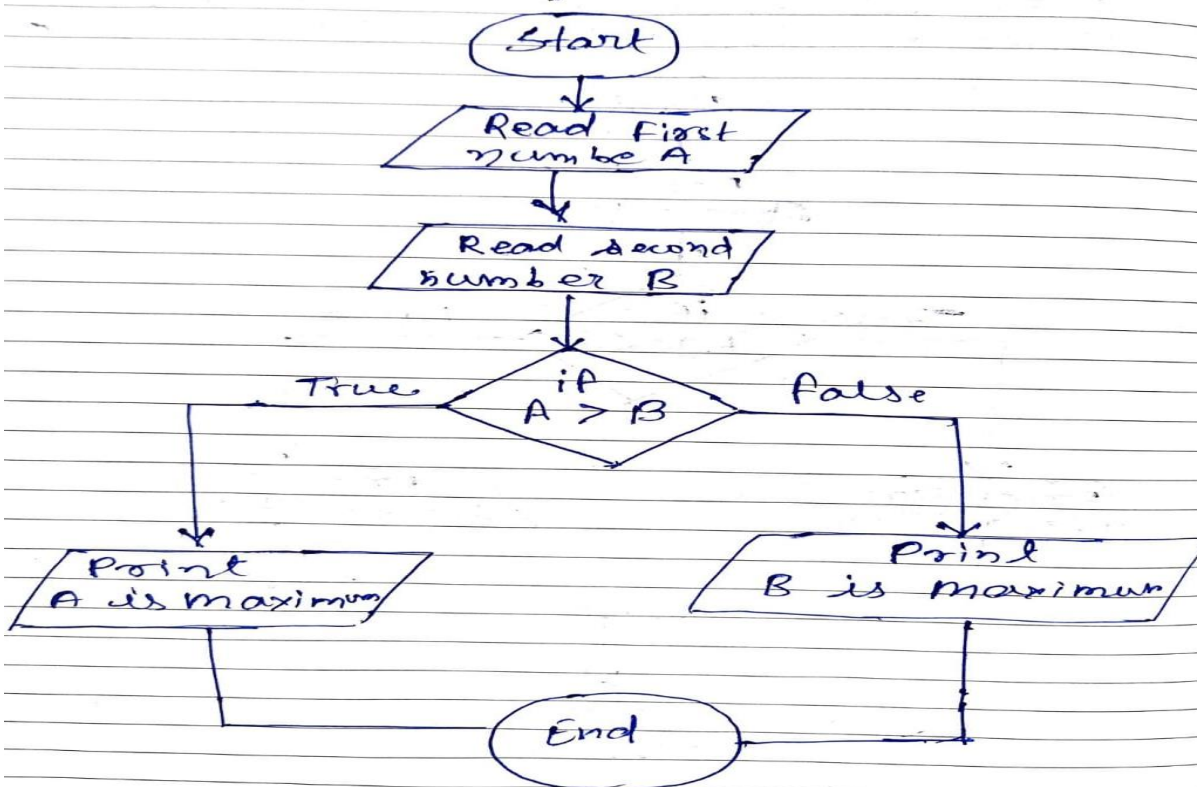 Start
Read First
numbe A
Read second
number B
if
A > B
True
false
Print
A is maximum
Print
B is maximum
End